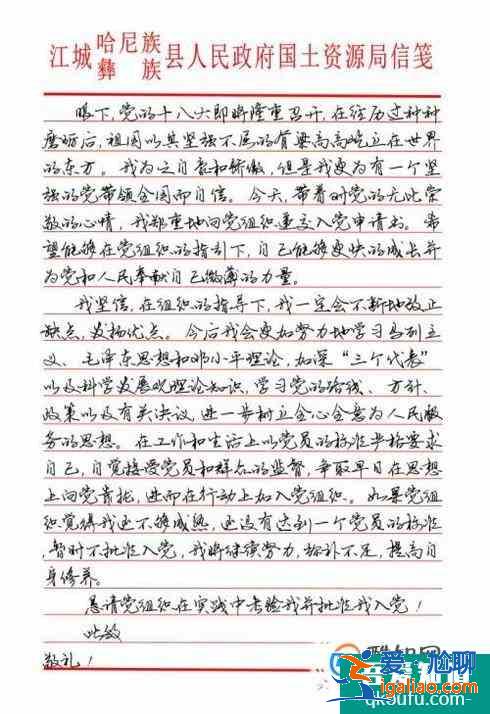 江城哈尼族彝族县人民政府国土资源局信笺
眼下，党的十八大即将隆重召开，在经历过种种
磨砺后，祖国以其坚强不屈的脊梁高高屹立在世界
的东方。我为之自豪和骄傲，但是我更为有一个坚
强的党带领全国而自信。今天，带着对党的无比崇
敬的心情，我郑重地向党组织递交入党申请书。希
望能够在党组织的指引下，自己能够更快的成长并
为党和人民奉献自己微薄的力量。
我坚信，在组织的指导下，我一定会不断地改正
缺点，发扬优点。今后我会更加努力地学习马列主
义、毛泽东思想和邓小平理论，加深“三个代表”
以及科学发展观理论知识，学习党的路线、方针、
政策以及有关决议，进一步树立全心全意为人民服
务的思想。在工作和生活上以党员的标准严格要求
自己，自觉接受党员和群众的监督，争取早日在思想
上向党靠拢，进而在行动上加入党组织。如果党组
织觉得我还不够成熟，还没有达到一个党员的标准，
暂时不批准入党，我将继续努力，弥补不足，提高自
身修养。
恳请党组织在实践中考验我并批准我入党！
此致
敬礼！
爱尬聊
igaliao.com
qk0898.com